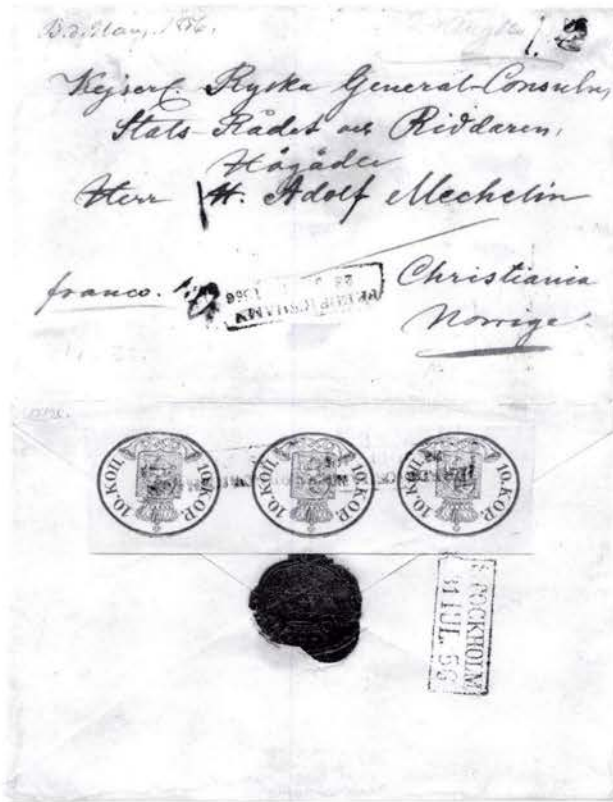 Kejserl. Ryska General-Consuln,
Stats-Rådet och Riddaren,
Högädle
Herr H. Adolf Mechelin
franco.
FREDRIKSHAMN
1856
Christiania
Norrige.
10. КОП. 10. KOP. 10. КОП. 10. KOP. 10. КОП. 10. KOP.
STOCKHOLM
31 JUL. 56